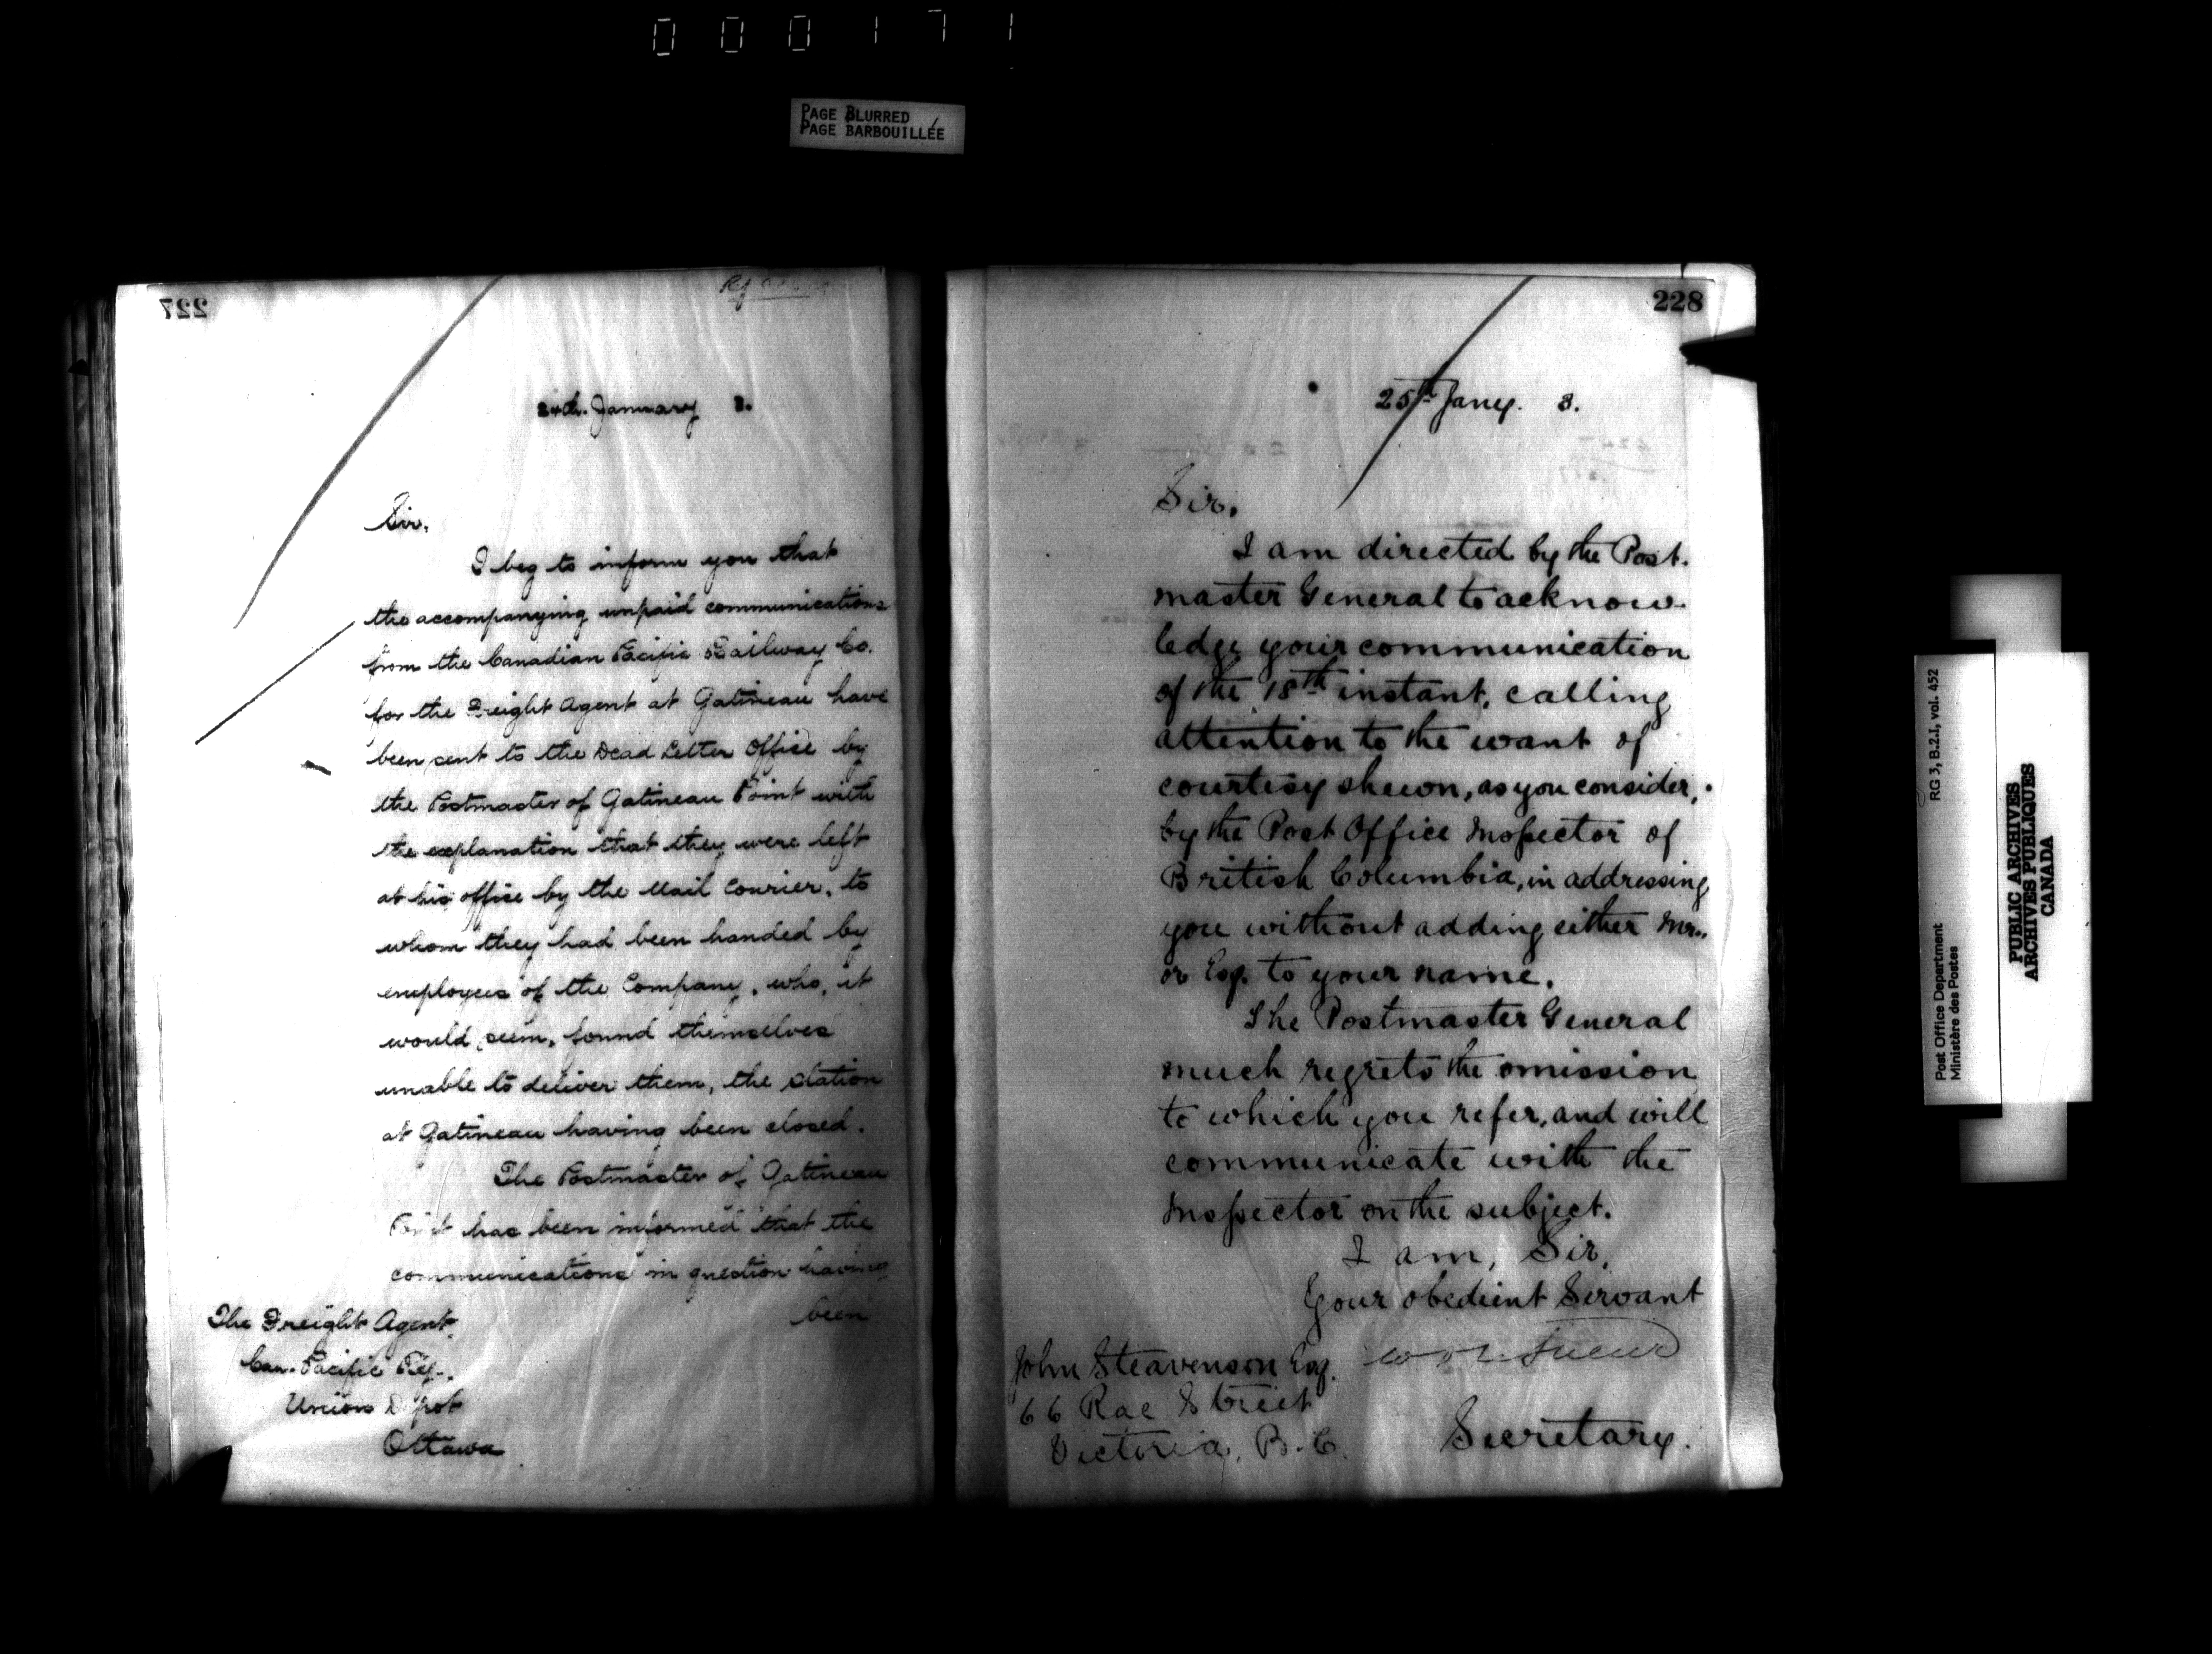 000171
PAGE BLURRED
PAGE BARBOUILLÉE
227
24th. January 3.
Sir,
I beg to inform you that
the accompanying unpaid communications
from the Canadian Pacific Railway Co.
for the Freight Agent at Gatineau have
been sent to the Dead Letter Office by
the Postmaster of Gatineau Point with
the explanation that they were left
at his office by the Mail Courier, to
whom they had been handed by
employees of the Company, who, it
would seem, found themselves
unable to deliver them, the station
at Gatineau having been closed.
The Postmaster of Gatineau
Point has been informed that the
communications in question having
been
The Freight Agent,
Can. Pacific Ry.,
Union Depot
Ottawa
228
25th Jany. 3.
Sir,
I am directed by the Post-
master General to acknow-
ledge your communication
of the 18th instant, calling
attention to the want of
courtesy shewn, as you consider,
by the Post Office Inspector of
British Columbia, in addressing
you without adding either Mr.,
or Esq. to your name.
The Postmaster General
much regrets the omission
to which you refer, and will
communicate with the
Inspector on the subject.
I am, Sir,
Your obedient Servant
John Steavenson Esq.
66 Rae Street
Victoria, B.C.
Secretary.
RG 3, B.2.I, vol. 452
Post Office Department
Ministère des Postes
PUBLIC ARCHIVES
ARCHIVES PUBLIQUES
CANADA